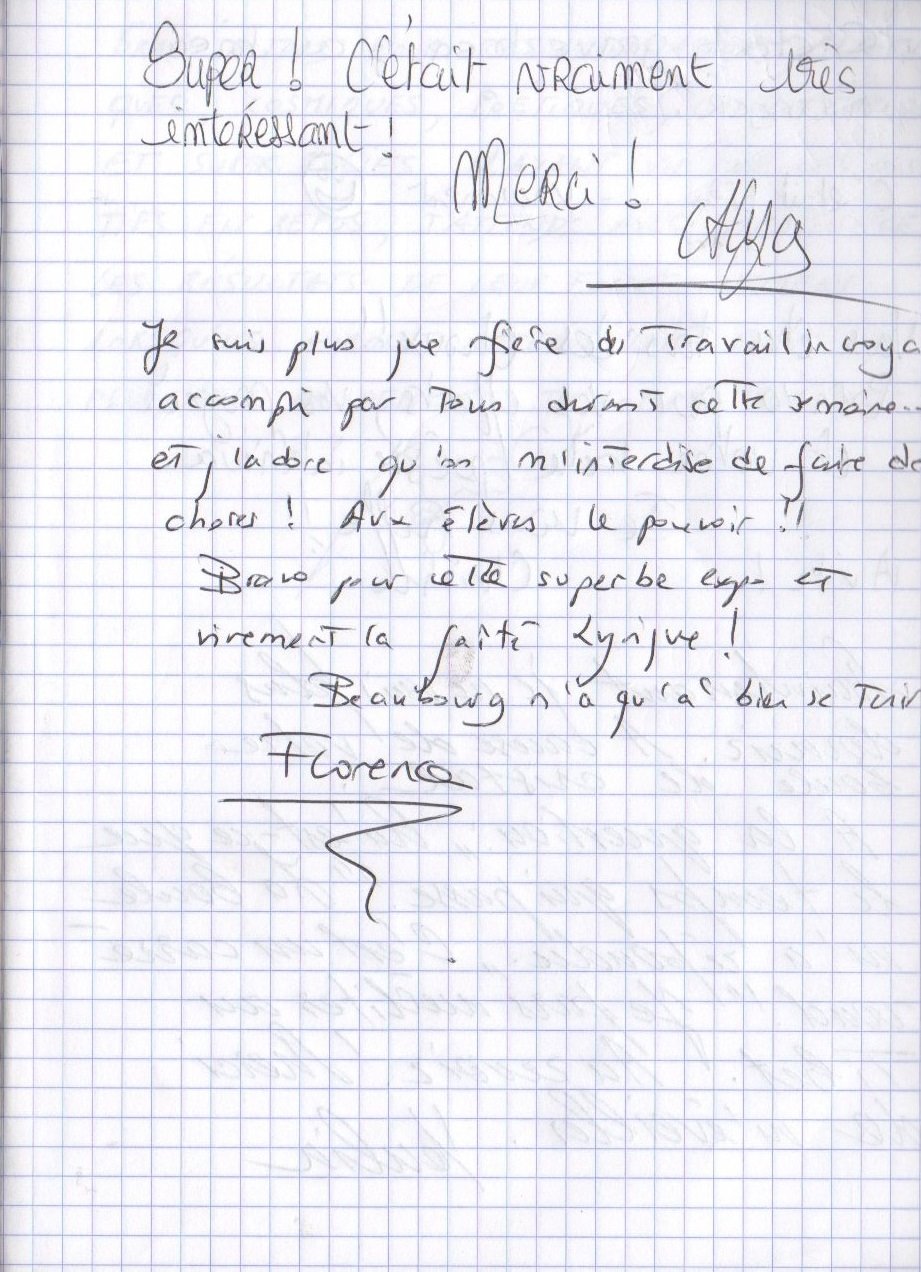 Super ! C'était vraiment très
intéressant !
Merci !
Je suis plus que fière du Travail incroya
accompli par Tous durant cette semaine.
et j'adore qu'on m'interdise de faire de
choses ! Aux élèves le pouvoir !!
Bravo pour cette superbe expo et
vivement la Gaîté Lyrique !
Beaubourg n'a qu'à bien se Tenir
Florence